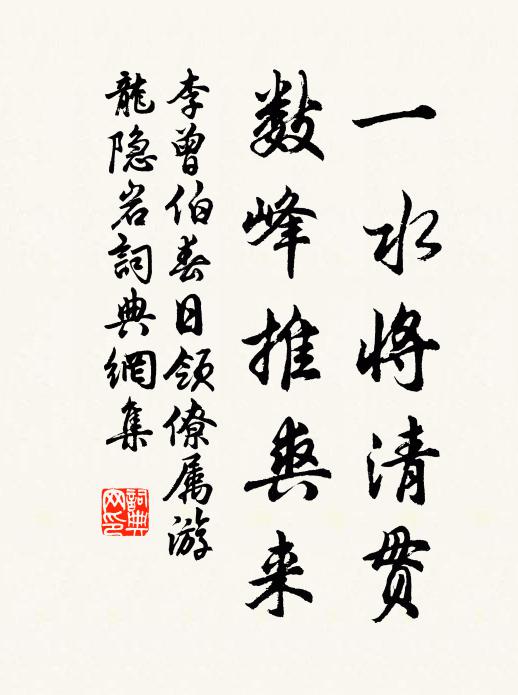 一水将清贯
数峰推爽来
李曾伯春日领僚属游
龍隐岩詞典網集
詞典
网印